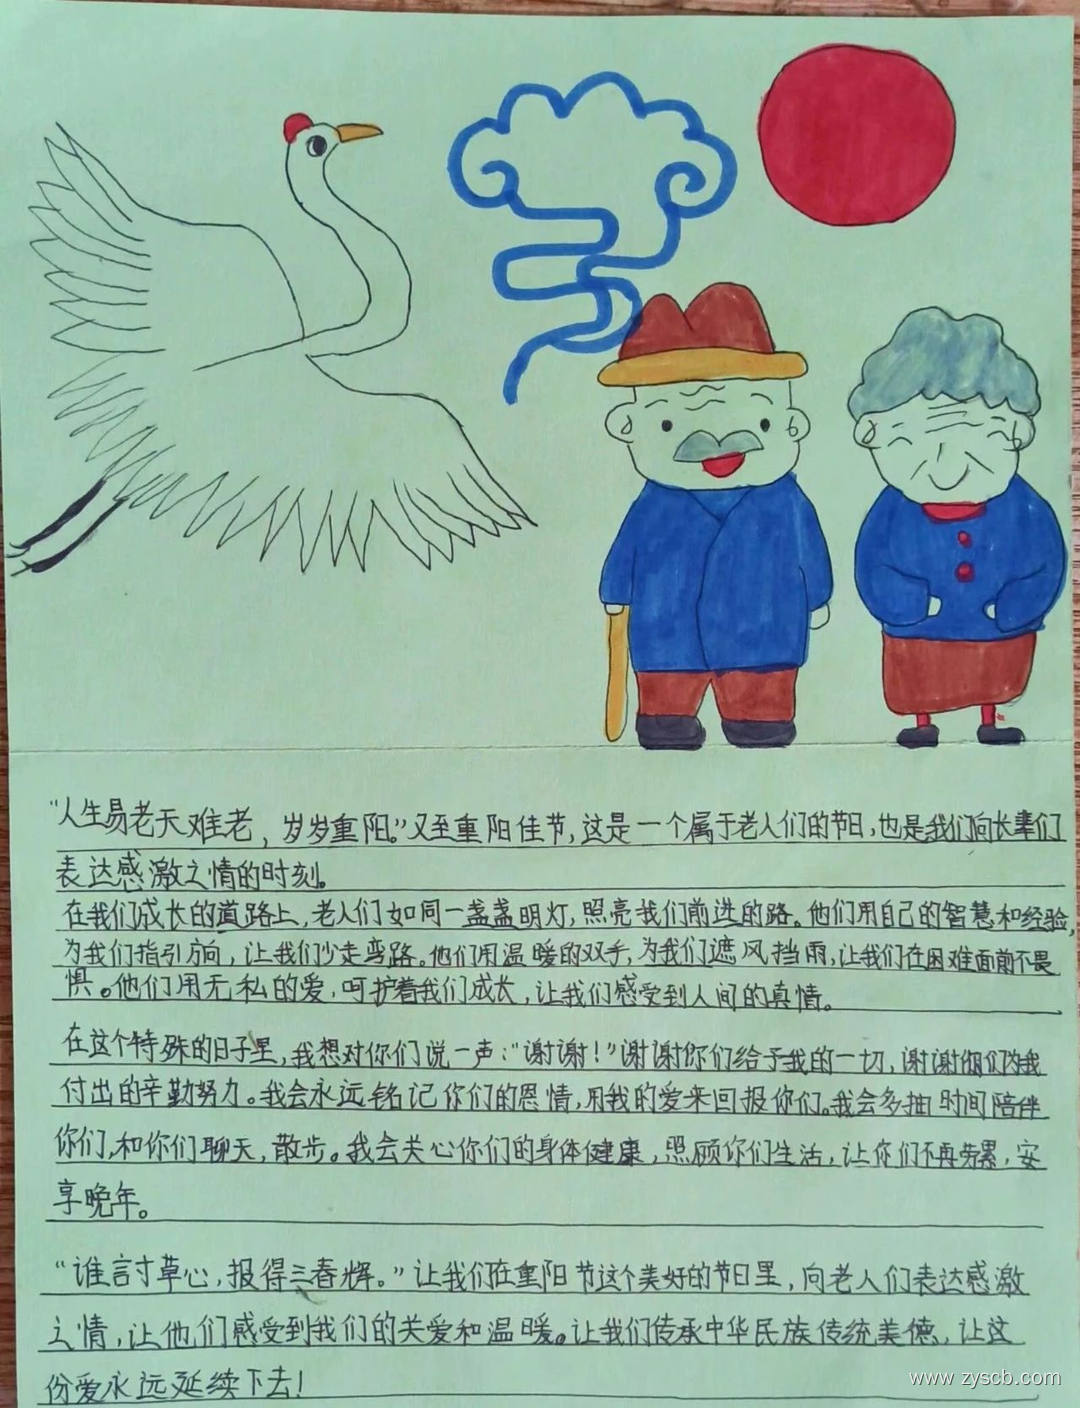 “人生易老天难老，岁岁重阳。”又至重阳佳节，这是一个属于老人们的节日，也是我们向长辈们
表达感激之情的时刻。
在我们成长的道路上，老人们如同一盏盏明灯，照亮我们前进的路。他们用自己的智慧和经验，
为我们指引方向，让我们少走弯路。他们用温暖的双手，为我们遮风挡雨，让我们在困难面前不畏
惧。他们用无私的爱，呵护着我们成长，让我们感受到人间的真情。
在这个特殊的日子里，我想对你们说一声：“谢谢！”谢谢你们给予我的一切，谢谢你们为我
付出的辛勤努力。我会永远铭记你们的恩情，用我的爱来回报你们。我会多抽时间陪伴
你们，和你们聊天，散步。我会关心你们的身体健康，照顾你们生活，让你们不再劳累，安
享晚年。
“谁言寸草心，报得三春辉。”让我们在重阳节这个美好的节日里，向老人们表达感激
之情，让他们感受到我们的关爱和温暖。让我们传承中华民族传统美德，让这
份爱永远延续下去！
www.zyscb.com